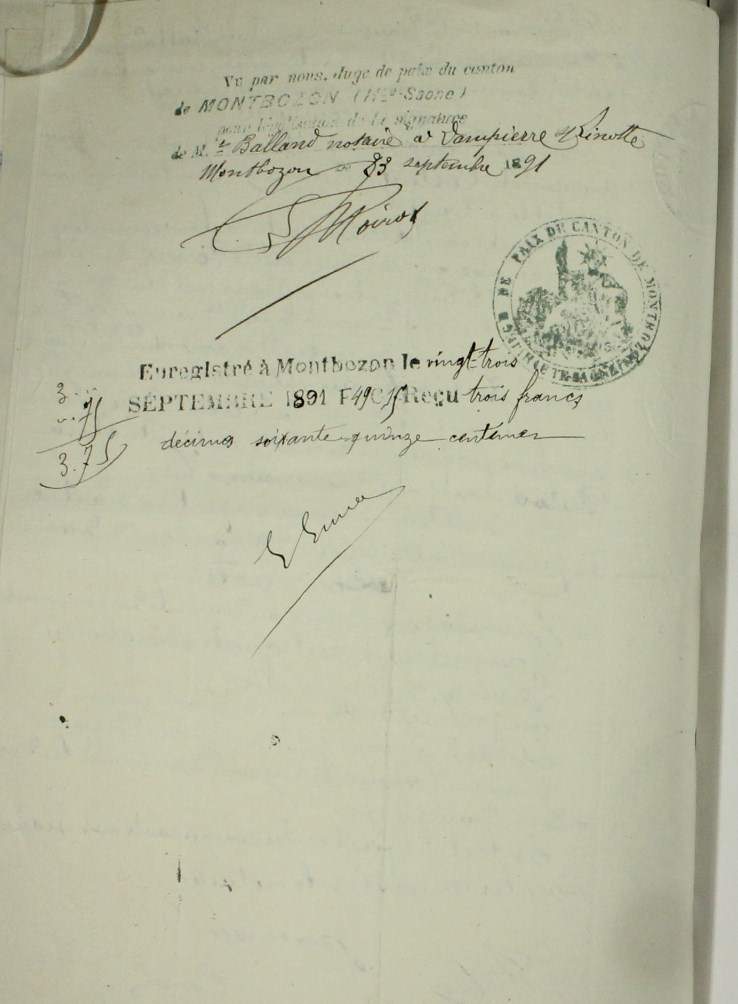 Vu par nous, Juge de paix du canton
de MONTBOZON (Hte-Saone)
pour législation de la signature
de M.e Balland notaire à Dampierre s/ Linotte
Montbozon le 23 septembre 1891
DE PAIX DU CANTON DE MONTBOZON
HAUTE-SAONE
Enregistré à Montbozon le vingt-trois
SEPTEMBRE 1891 F 49 C 15 Reçu trois francs
décimes soixante-quinze centimes
3
75
3.75